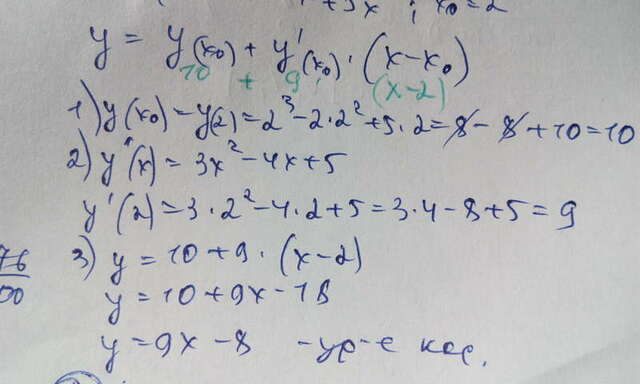 +5x ; x₀=2
y = y(x₀) + y'(x₀) · (x-x₀)
10 + 9 · (x-2)
1) y(x₀) = y(2) = 2³-2·2²+5·2=8-8+10=10
2) y'(x) = 3x²-4x+5
y'(2) = 3·2²-4·2+5=3·4-8+5=9
76
3) y = 10+9·(x-2)
00
y = 10+9x-18
y = 9x-8 -ур-е кас.